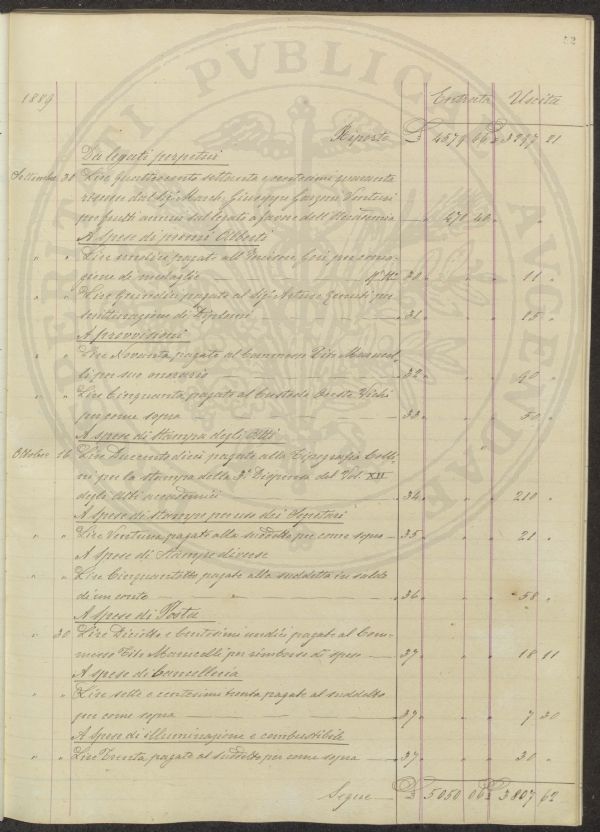 52
1889 Entrata Uscita
Riporto £ 4579 66 £ 3297 21
Da legati perpetui
Settembre 30 Lire Quattrocento settanta e centesimi quaranta
riscosse dal Sigr March. Giuseppe Garzoni Venturi
per frutti annui sul legato a favore dell'Accademia — " 470 40 " "
A spese di premi Alberti
" " Lire undici pagate all'Incisore per coniazione
di medaglie — N° 30 " " 11 "
" " Lire Quindici pagate al Sigr Arturo per
intitolazione di Diplomi — 31 " " 15 "
A provvisioni
" " Lire Novanta pagate al Commesso Tito Marucelli
per suo onorario — 32 " " 90 "
" " Lire Cinquanta pagate al Custode Oreste
per come sopra — 33 " " 50 "
A spese di stampa degli Atti
Ottobre 16 Lire Duecentodieci pagate alla Tipografia Collini
per la stampa della 3a Dispensa del Vol. XII
degli Atti accademici — 34 " " 210 "
A spese di stampe per uso dei Segretari
" " Lire Ventuna pagate alla suddetta per come sopra — 35 " " 21 "
A spese di Stampe diverse
" " Lire Cinquantotto pagate alla suddetta in saldo
di un conto — 36 " " 58 "
A spese di Posta
" 30 Lire Diciotto e Centesimi undici pagate al Commesso
Tito Marucelli per rimborso di spese — 37 " " 18 11
A spese di Cancelleria
" " Lire sette e centesimi trenta pagate al suddetto
per come sopra — 37 " " 7 30
A spese di illuminazione e combustibile
" " Lire Trenta pagate al suddetto per come sopra — 37 " " 30 "
Segue — £ 5050 06 £ 3807 62